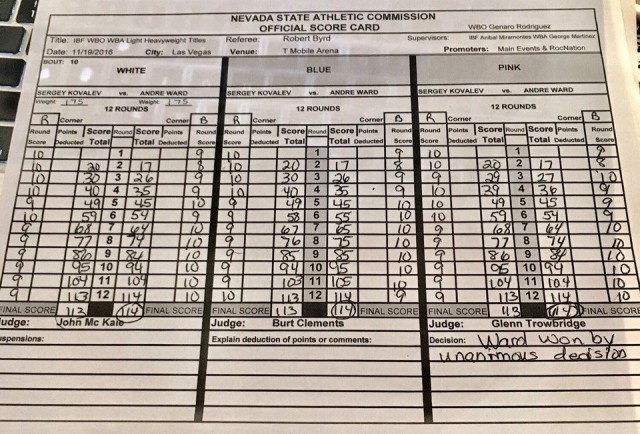 NEVADA STATE ATHLETIC COMMISSION
OFFICIAL SCORE CARD
WBO Genaro Rodriguez
Title: IBF WBO WBA Light Heavyweight Titles Referee: Robert Byrd Supervisors: IBF Anibal Miramontes WBA George Martinez
Date: 11/19/2016 City: Las Vegas Venue: T Mobile Arena Promoters: Main Events & RocNation
BOUT: 10
WHITE BLUE PINK
SERGEY KOVALEV vs. ANDRE WARD SERGEY KOVALEV vs. ANDRE WARD SERGEY KOVALEV vs. ANDRE WARD
Weight 175 Weight: 175
12 ROUNDS 12 ROUNDS 12 ROUNDS
R Corner Corner B R Corner Corner B R Corner Corner B
Round Points Score Round Score Points Round Round Points Score Round Score Points Round Round Points Score Round Score Points Round
Score Deducted Total Total Deducted Score Score Deducted Total Total Deducted Score Score Deducted Total Total Deducted Score
10 1 9 10 1 9 10 1 9
10 20 2 17 8 10 20 2 17 8 10 20 2 17 8
10 30 3 26 9 10 30 3 26 9 9 29 3 27 10
10 40 4 35 9 10 40 4 35 9 10 39 4 36 9
9 49 5 45 10 9 49 5 45 10 10 49 5 45 9
10 59 6 54 9 9 58 6 55 10 10 59 6 54 9
9 68 7 64 10 9 67 7 65 10 9 68 7 64 10
9 77 8 74 10 9 76 8 75 10 9 77 8 74 10
9 86 9 84 10 9 85 9 85 10 9 86 9 84 10
9 95 10 94 10 9 94 10 95 10 9 95 10 94 10
9 104 11 104 10 9 103 11 105 10 9 104 11 104 10
9 113 12 114 10 10 113 12 114 9 9 113 12 114 10
FINAL SCORE 113 114 FINAL SCORE FINAL SCORE 113 114 FINAL SCORE FINAL SCORE 113 114 FINAL SCORE
Judge: John Mc Kaie Judge: Burt Clements Judge: Glenn Trowbridge
Explain deduction of points or comments: Decision: Ward won by
unanimous decision